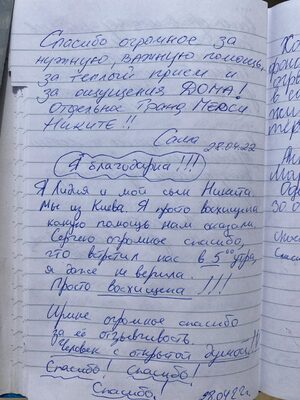 Спасибо огромное за
нужную, важную помощь,
за тёплый приём и
за ощущения ДОМА!
Отдельное Гранд Мерси
Никите!!
28.04.22
Я благодарна!!!
Я Лидия и мой сын Никита.
Мы из Киева. Я просто восхищена
какую помощь нам оказали.
Сергею огромное спасибо,
что встретил нас в 5⁰⁰ утра,
я даже не верила.
Просто восхищена!!!
Ирине огромное спасибо
за её отзывчивость.
Человек с открытой душой!!
Спасибо! Спасибо!
Спасибо.
28.04.22г.